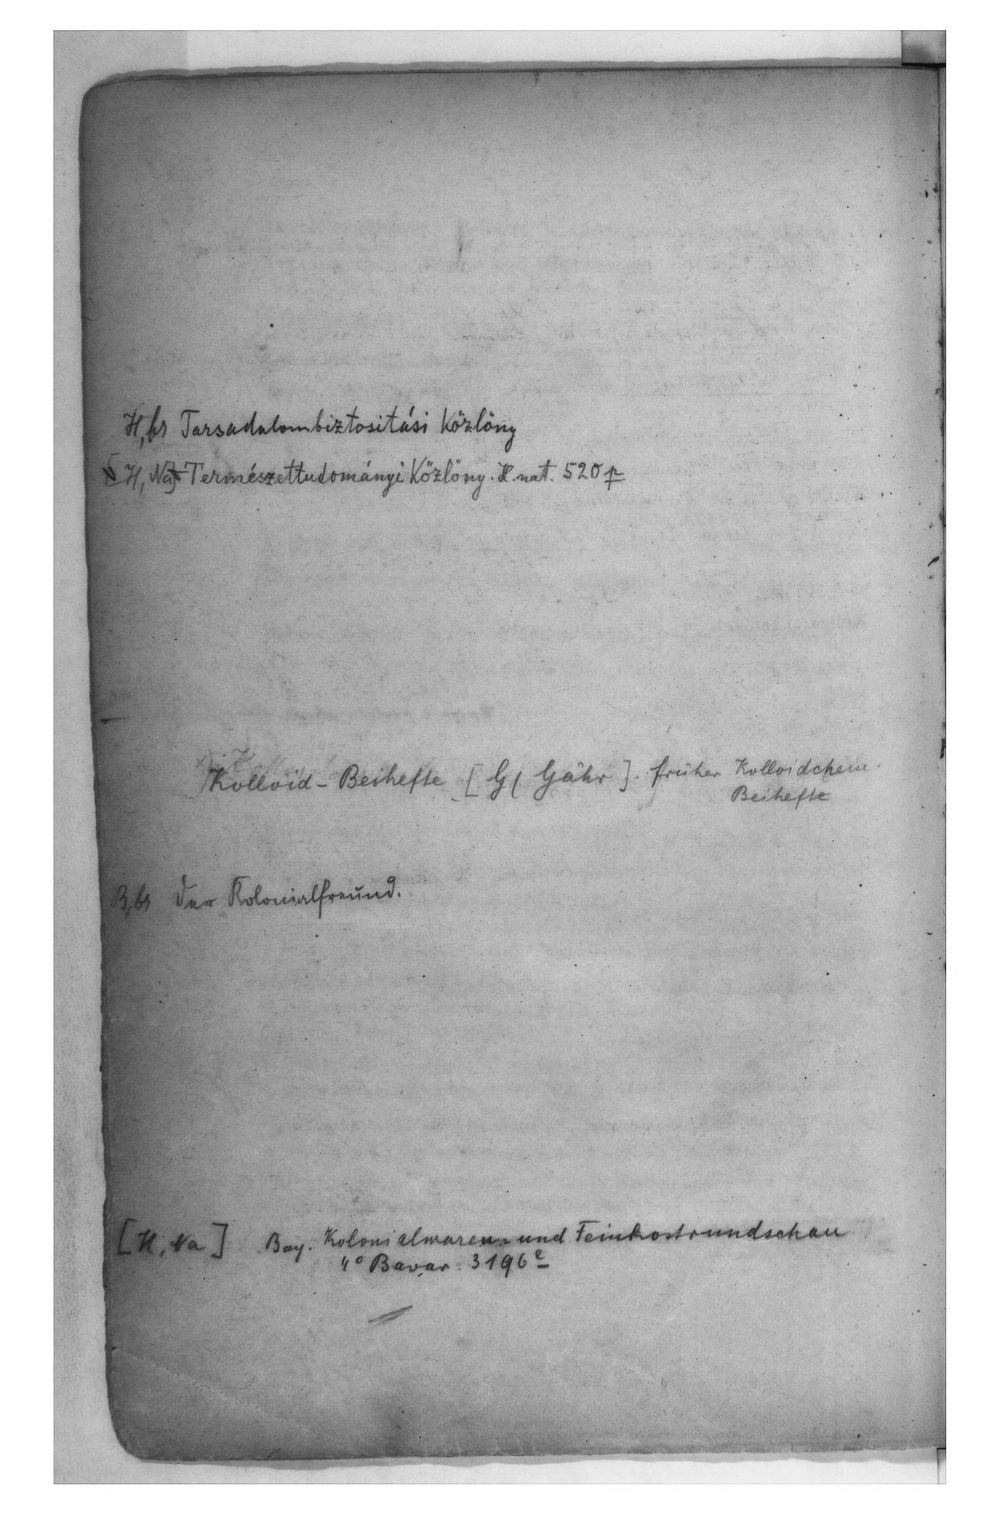 H, br Tarsadalombiztositási Közlöny
[H, Na] Természettudományi Közlöny. H. nat. 520 p
Kolloid-Beihefte [G( Gähr]. früher Kolloidchem.
Beihefte
B, br Der Kolonialfreund.
[H, Na] Bay. Kolonialwaren- und Feinkostrundschau
4° Bavar. 3196 e